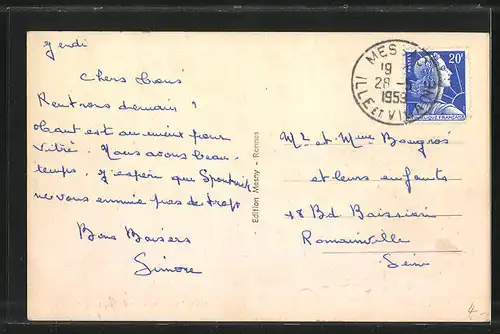 Jeudi
Chers tous
Rentrons demain !
tout est au mieux pour
Vitré. Nous avons beau-
temps. J'espère que Spoutnik
ne vous ennuie pas de trop
Bons Baisers
Simone
Edition Mesny - Rennes
19
28 -
1959
ILLE ET VILAINE
POSTES
20F
REPUBLIQUE FRANÇAISE
Mr et Mme Bougros
et leurs enfants
18 Bd Baissière
Romainville
Seine
4-